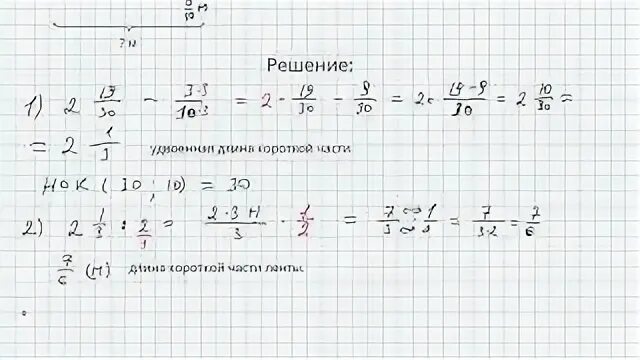 9/30 м
? м
Решение:
1) 2 19/30 − 3·3/10·3 = 2 · 19/30 − 9/30 = 2 · 19 − 9/30 = 2 10/30 =
= 2 1/3 удвоенная длина короткой части
НОК (30 ; 10) = 30
2) 2 1/3 : 2/1 = 2·3 Н/3 · 1/2 = 7/3 · 1/2 = 7/3·2 = 7/6
7/6 (м) длина короткой части ленты